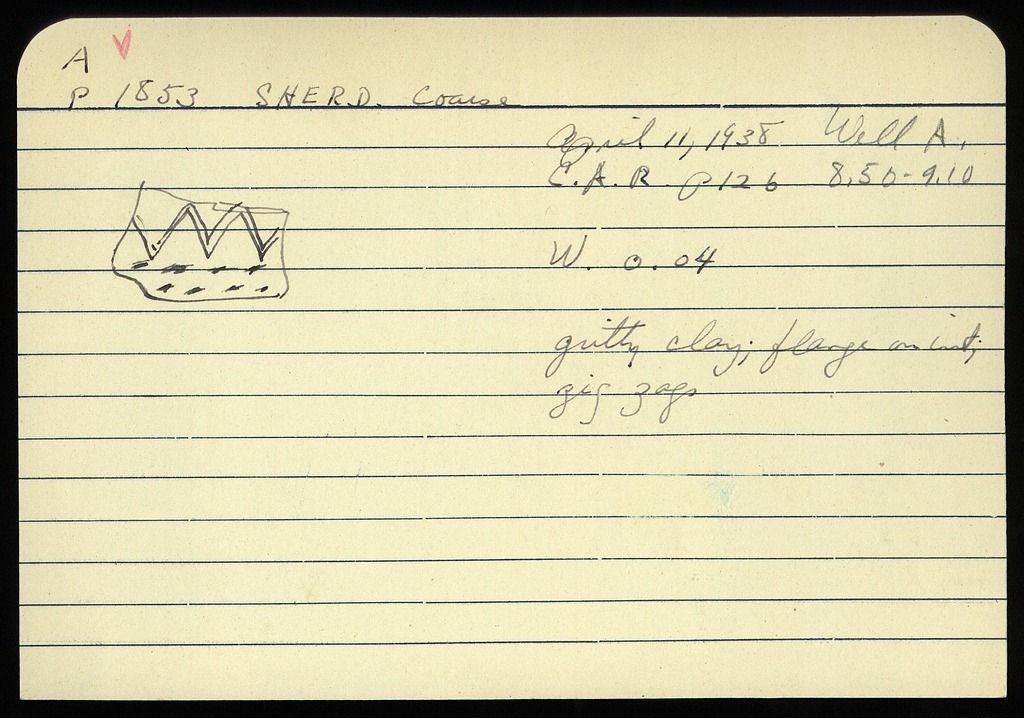 A
P 1853 SHERD. Coarse
April 11, 1938 Well A.
C.A.R. p 126 8.50-9.10
W. 0.04
gritty clay; flange on int;
zig zags